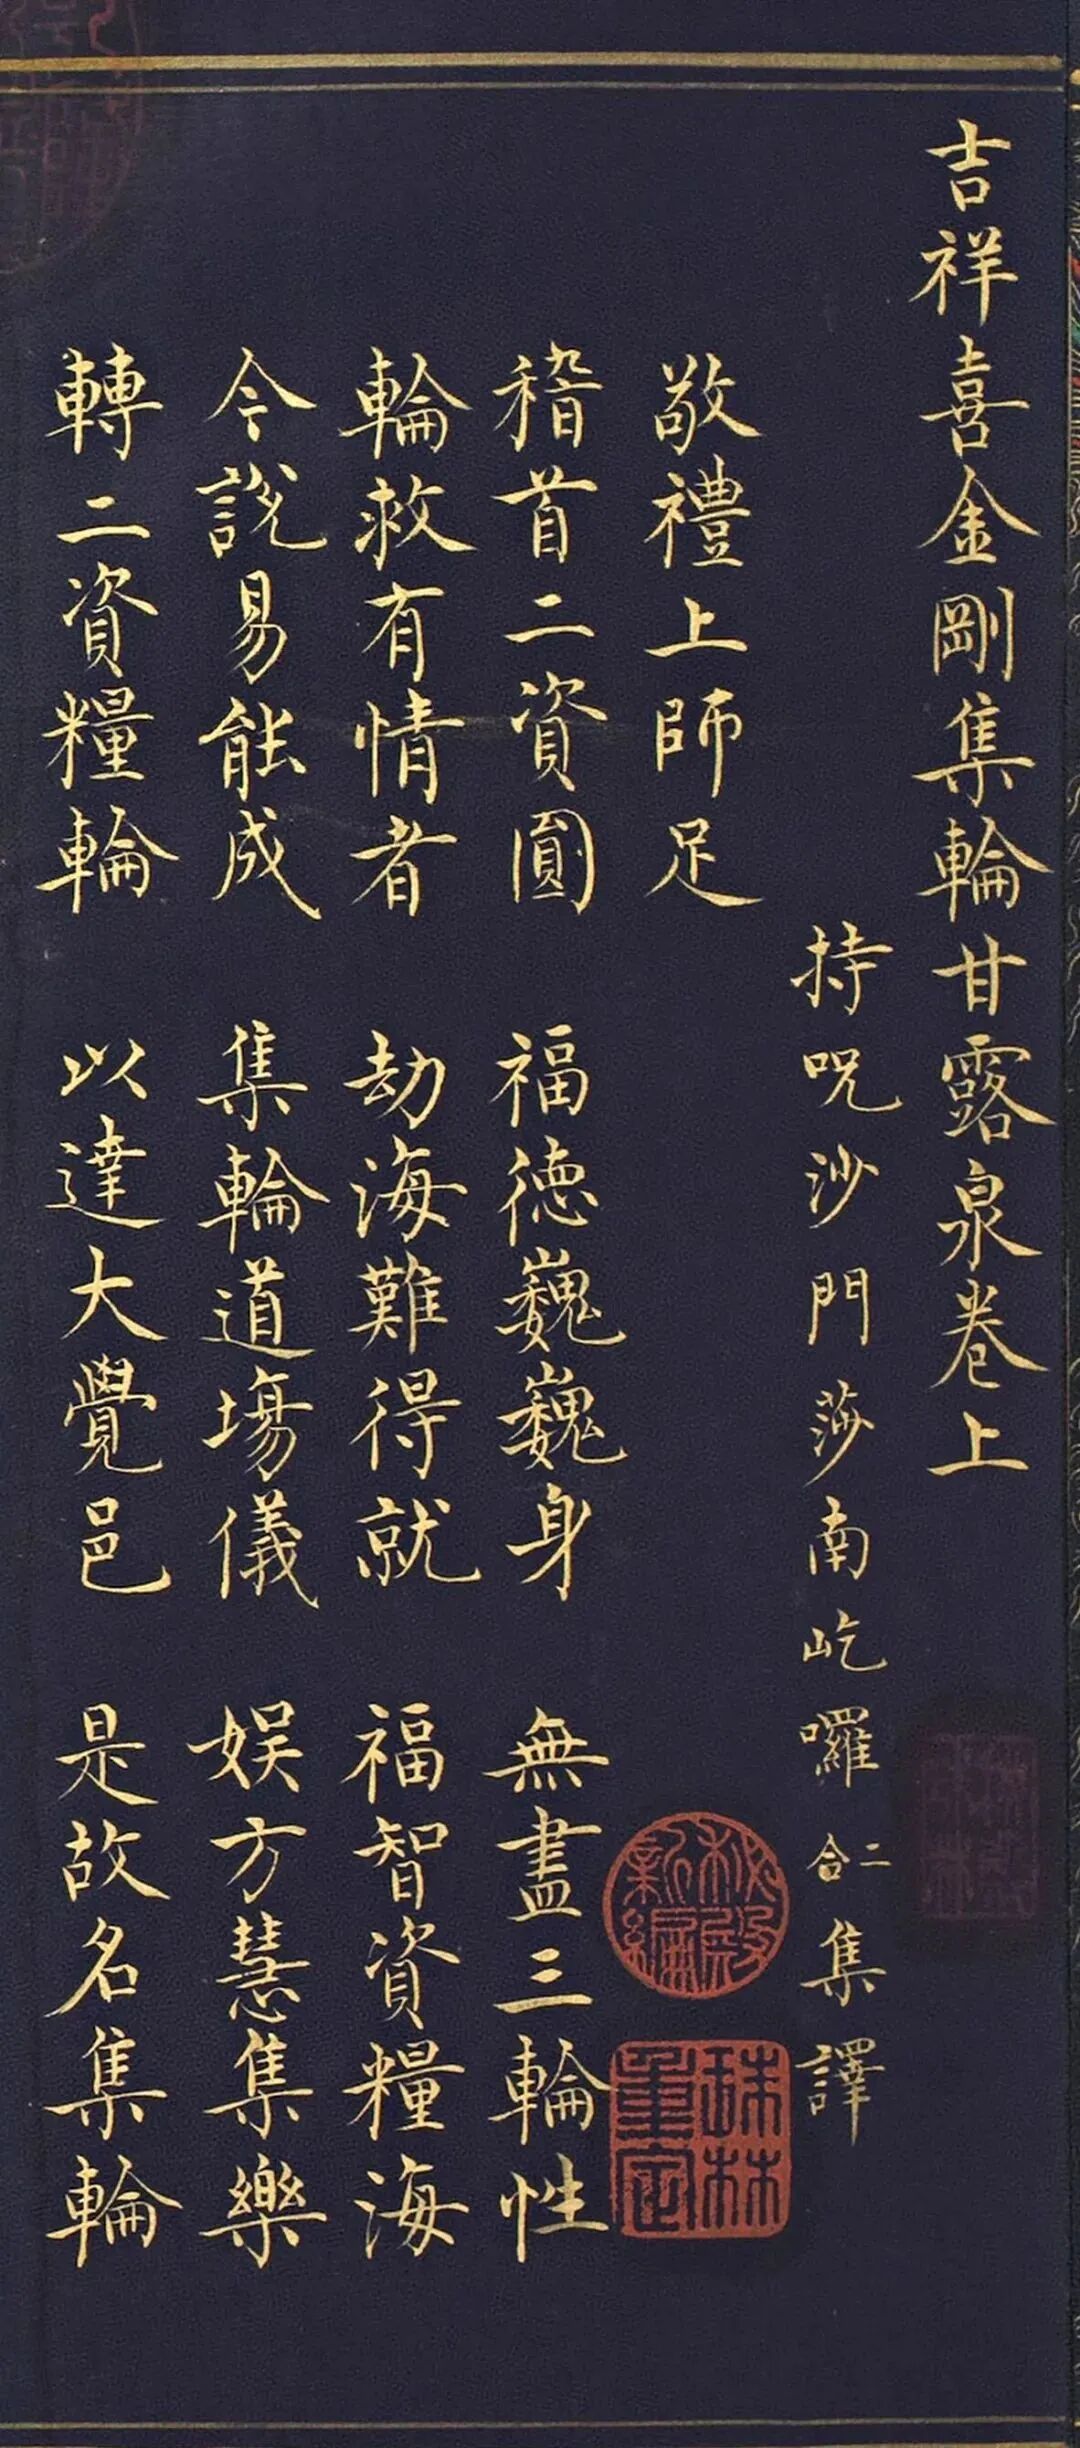 吉祥喜金剛集輪甘露泉卷上
持呪沙門莎南屹囉二合集譯
敬禮上師足
稽首二資圓 福德巍巍身 無盡三輪性
輪救有情者 劫海難得就 福智資糧海
今說易能成 集輪道場儀 娛方慧集樂
轉二資糧輪 以達大覺邑 是故名集輪
秘殿新編
珠林重定